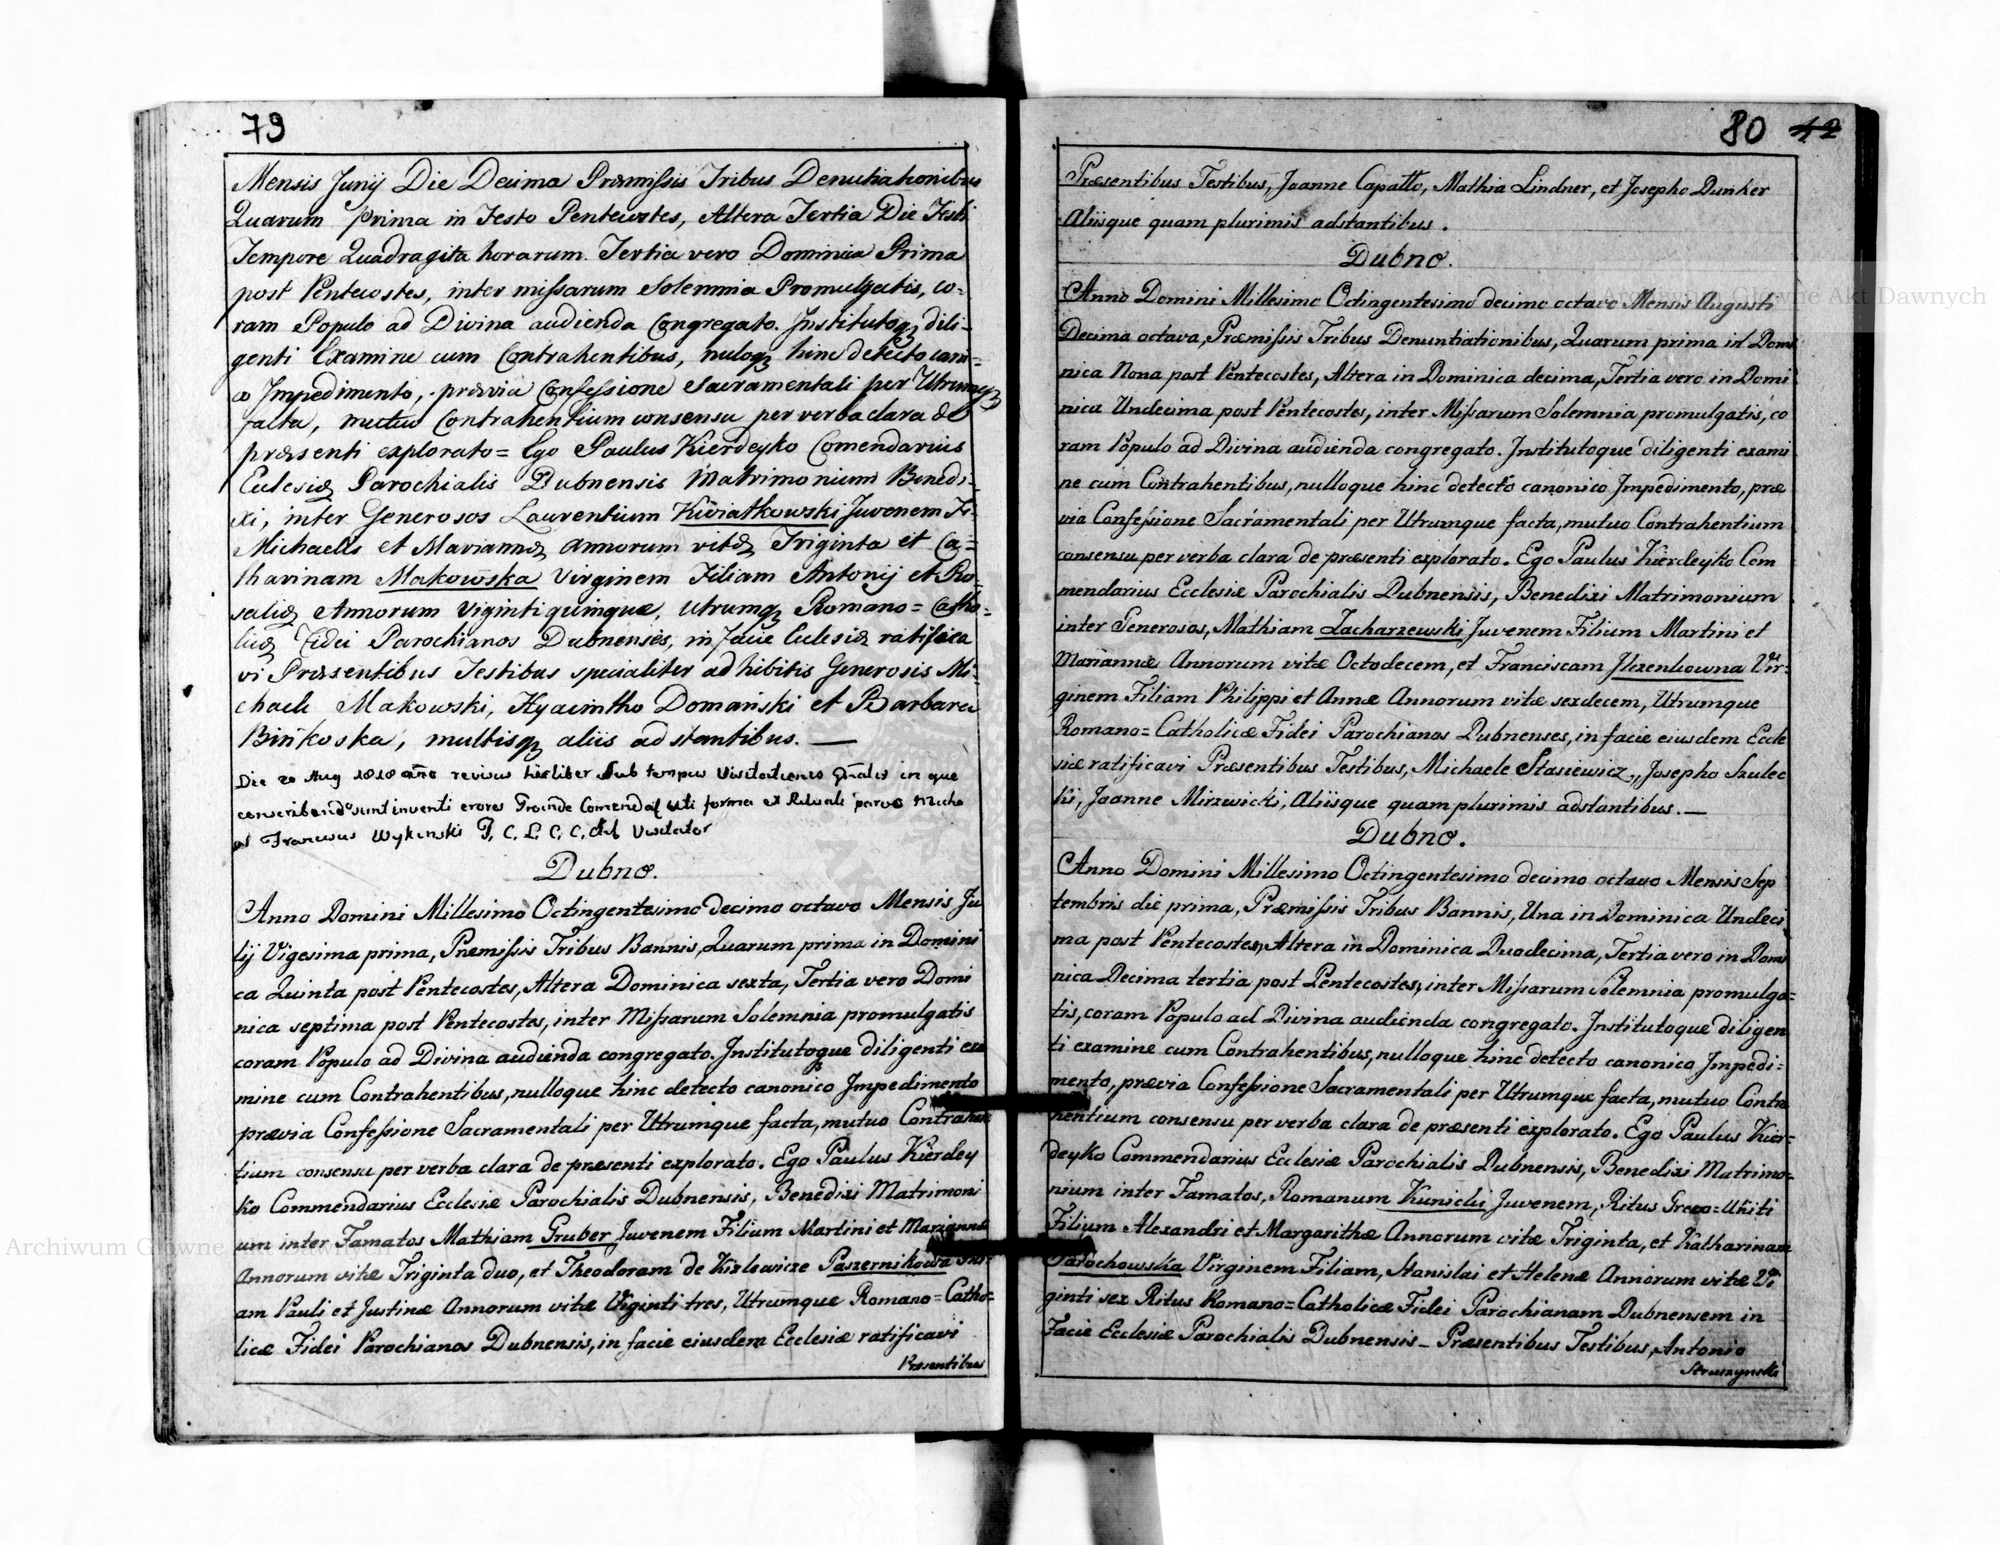 79
Mensis Junij Die Decima Præmissis Tribus Denutiationibus
Quarum prima in Festo Pentecostes, Altera Tertia Die Festi
Tempore Quadragita horarum Tertia vero Dominica Prima
post Pentecostes, inter missarum Solemnia Promulgatis, co-
ram Populo ad Divina audienda Congregato. Institutoq3 dili-
genti Examine cum Contrahentibus, nuloq3 hinc detecto cano-
co Impedimento, prævia Confessione Sacramentali per Utrumq3
facta, mutuo Contrahentium consensu per verba clara de
præsenti explorato= Ego Paulus Kierdeyko Comendarius
Eclesiæ Parochialis Dubnensis Matrimonium Benedi-
xi, inter Generosos Laurentium Kwiatkowski Juvenem Fi-
Michaelis et Mariannæ annorum vitæ Triginta et Ca=
tharinam Makowska Virginem Filiam Antonij et Ro-
saliæ Annorum Vigintiquinque, Utrumq3 Romano=Catho-
licæ Fidei Parochianos Dubnenses, in facie Eclesiæ ratifica
vi Præsentibus Testibus specialiter adhibitis Generosis Mi-
chaele Makowski, Hyacintho Domański et Barbara
Bińkoska, multisq3 aliis adstantibus. —
Die 20 Aug 1818 año revisus hic liber sub tempus Visitationis in que
conscribendo sunt inventi erores Proinde uti forma ex Rituali parvo
Francisus Wykinski P. C. L. C. C. Visitator
Dubno.
Anno Domini Millesimo Octingentesimo decimo octavo Mensis Ju
lij Vigesima prima, Præmissis Tribus Bannis, Quarum prima in Domini
ca Quinta post Pentecostes, Altera Dominica sexta, Tertia vero Domi
nica septima post Pentecostes, inter Missarum Solemnia promulgatis
coram Populo ad Divina audienda congregato. Institutoque diligenti exa
mine cum Contrahentibus, nulloque hinc detecto canonico Impedimento
prævia Confessione Sacramentali per Utrumque facta, mutuo Contrahen
tium consensu per verba clara de præsenti explorato. Ego Paulus Kierdey
ko Commendarius Ecclesiæ Parochialis Dubnensis, Benedixi Matrimoni
um inter Famatos Mathiam Gruber Juvenem Filium Martini et Mariannæ
Annorum vitæ Triginta duo, et Theodoram de Kizlewicze Paszernikowa
am Pauli et Justinæ Annorum vitæ Viginti tres, Utrumque Romano=Catho-
licæ Fidei Parochianos Dubnensis, in facie eiusdem Ecclesiæ ratificavi
Præsentibus
80 42
Præsentibus Testibus, Joanne Capatto, Mathia Lindner, et Josepho Dunker
Aliisque quam plurimis adstantibus.
Dubno.
Anno Domini Millesimo Octingentesimo decimo octavo Mensis Augusti
Decima octava, Præmissis Tribus Denuntiationibus, Quarum prima in Domi
nica Nona post Pentecostes, Altera in Dominica decima, Tertia vero in Domi
nica Undecima post Pentecostes, inter Missarum Solemnia promulgatis, co
ram Populo ad Divina audienda congregato. Institutoque diligenti exami
ne cum Contrahentibus, nulloque hinc detecto canonico Impedimento, præ
via Confessione Sacramentali per Utrumque facta, mutuo Contrahentium
consensu per verba clara de præsenti explorato. Ego Paulus Kierdeyko Com
mendarius Ecclesiæ Parochialis Dubnensis, Benedixi Matrimonium
inter Generosos, Mathiam Zacharzewski Juvenem Filium Martini et
Mariannæ Annorum vitæ Octodecem, et Franciscam Jlxenkowna Vir-
ginem Filiam Philippi et Annæ Annorum vitæ sexdecem, Utrumque
Romano=Catholicæ Fidei Parochianos Dubnenses, in facie eiusdem Eccle
siæ ratificavi Præsentibus Testibus, Michaele Stasiewicz, Josepho Szulec
ki, Joanne Mirzwicki, Aliisque quam plurimis adstantibus. —
Dubno.
Anno Domini Millesimo Octingentesimo decimo octavo Mensis Sep
tembris die prima, Præmissis Tribus Bannis, Una in Dominica Undeci
ma post Pentecostes, Altera in Dominica Duodecima, Tertia vero in Domi
nica Decima tertia post Pentecostes, inter Missarum Solemnia promulga=
tis, coram Populo ad Divina audienda congregato. Institutoque diligen
ti examine cum Contrahentibus, nulloque hinc detecto canonico Impedi=
mento, prævia Confessione Sacramentali per Utrumque facta, mutuo Contra
hentium consensu per verba clara de præsenti explorato. Ego Paulus Kier=
deyko Commendarius Ecclesiæ Parochialis Dubnensis, Benedixi Matrimo-
nium inter Famatos, Romanum Kunicki Juvenem, Ritus Greco=Uniti
Filium Alexandri et Margarithæ Annorum vitæ Triginta, et Katharinam
Parochowska Virginem Filiam, Stanislai et Helenæ Annorum vitæ Vi
ginti sex Ritus Romano=Catholicæ Fidei Parochianam Dubnensem in
Facie Ecclesiæ Parochialis Dubnensis - Præsentibus Testibus, Antonio
Struszynski
Archiwum Główne Akt Dawnych